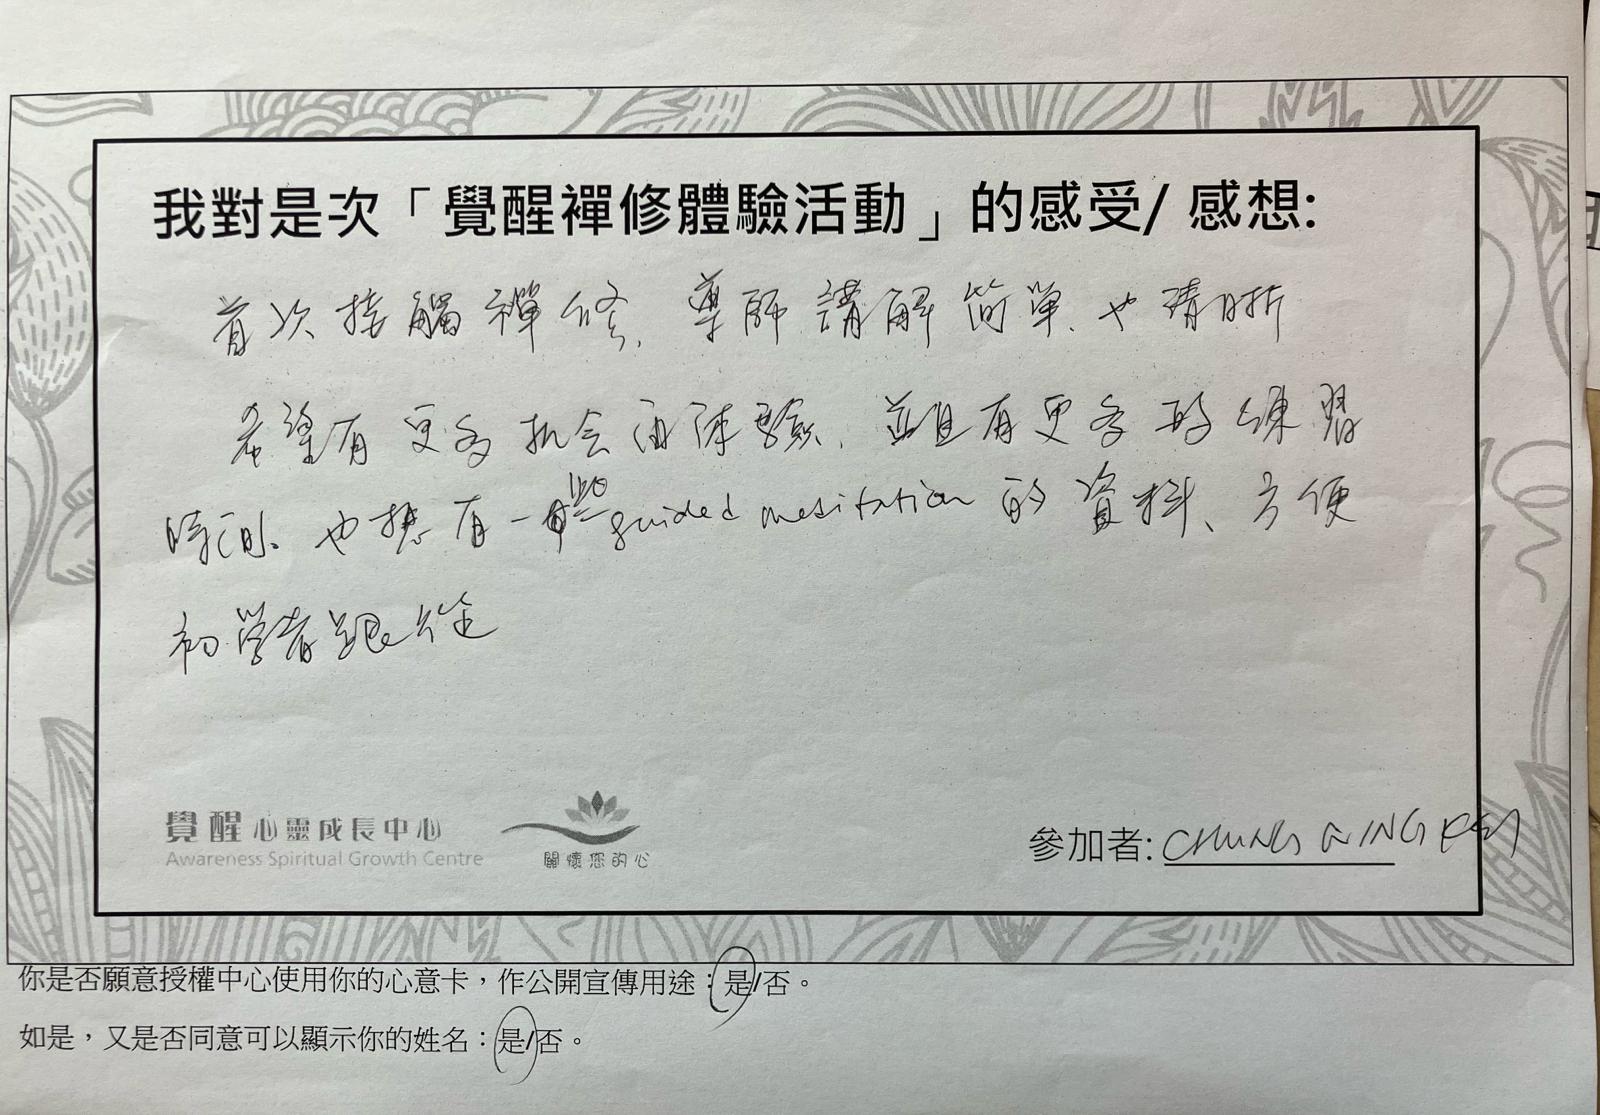 我對是次「覺醒禪修體驗活動」的感受/ 感想:
首次接觸禪修、導師講解简單、也清晰
希望有更多机会再体驗、並且有更多的練習
時间。也想有一些guided meditation 的資料、方便
初学者跟從
覺醒心靈成長中心
Awareness Spiritual Growth Centre
關懷您的心
參加者: CHUNG NING
你是否願意授權中心使用你的心意卡，作公開宣傳用途：是/否。
如是，又是否同意可以顯示你的姓名：是/否。